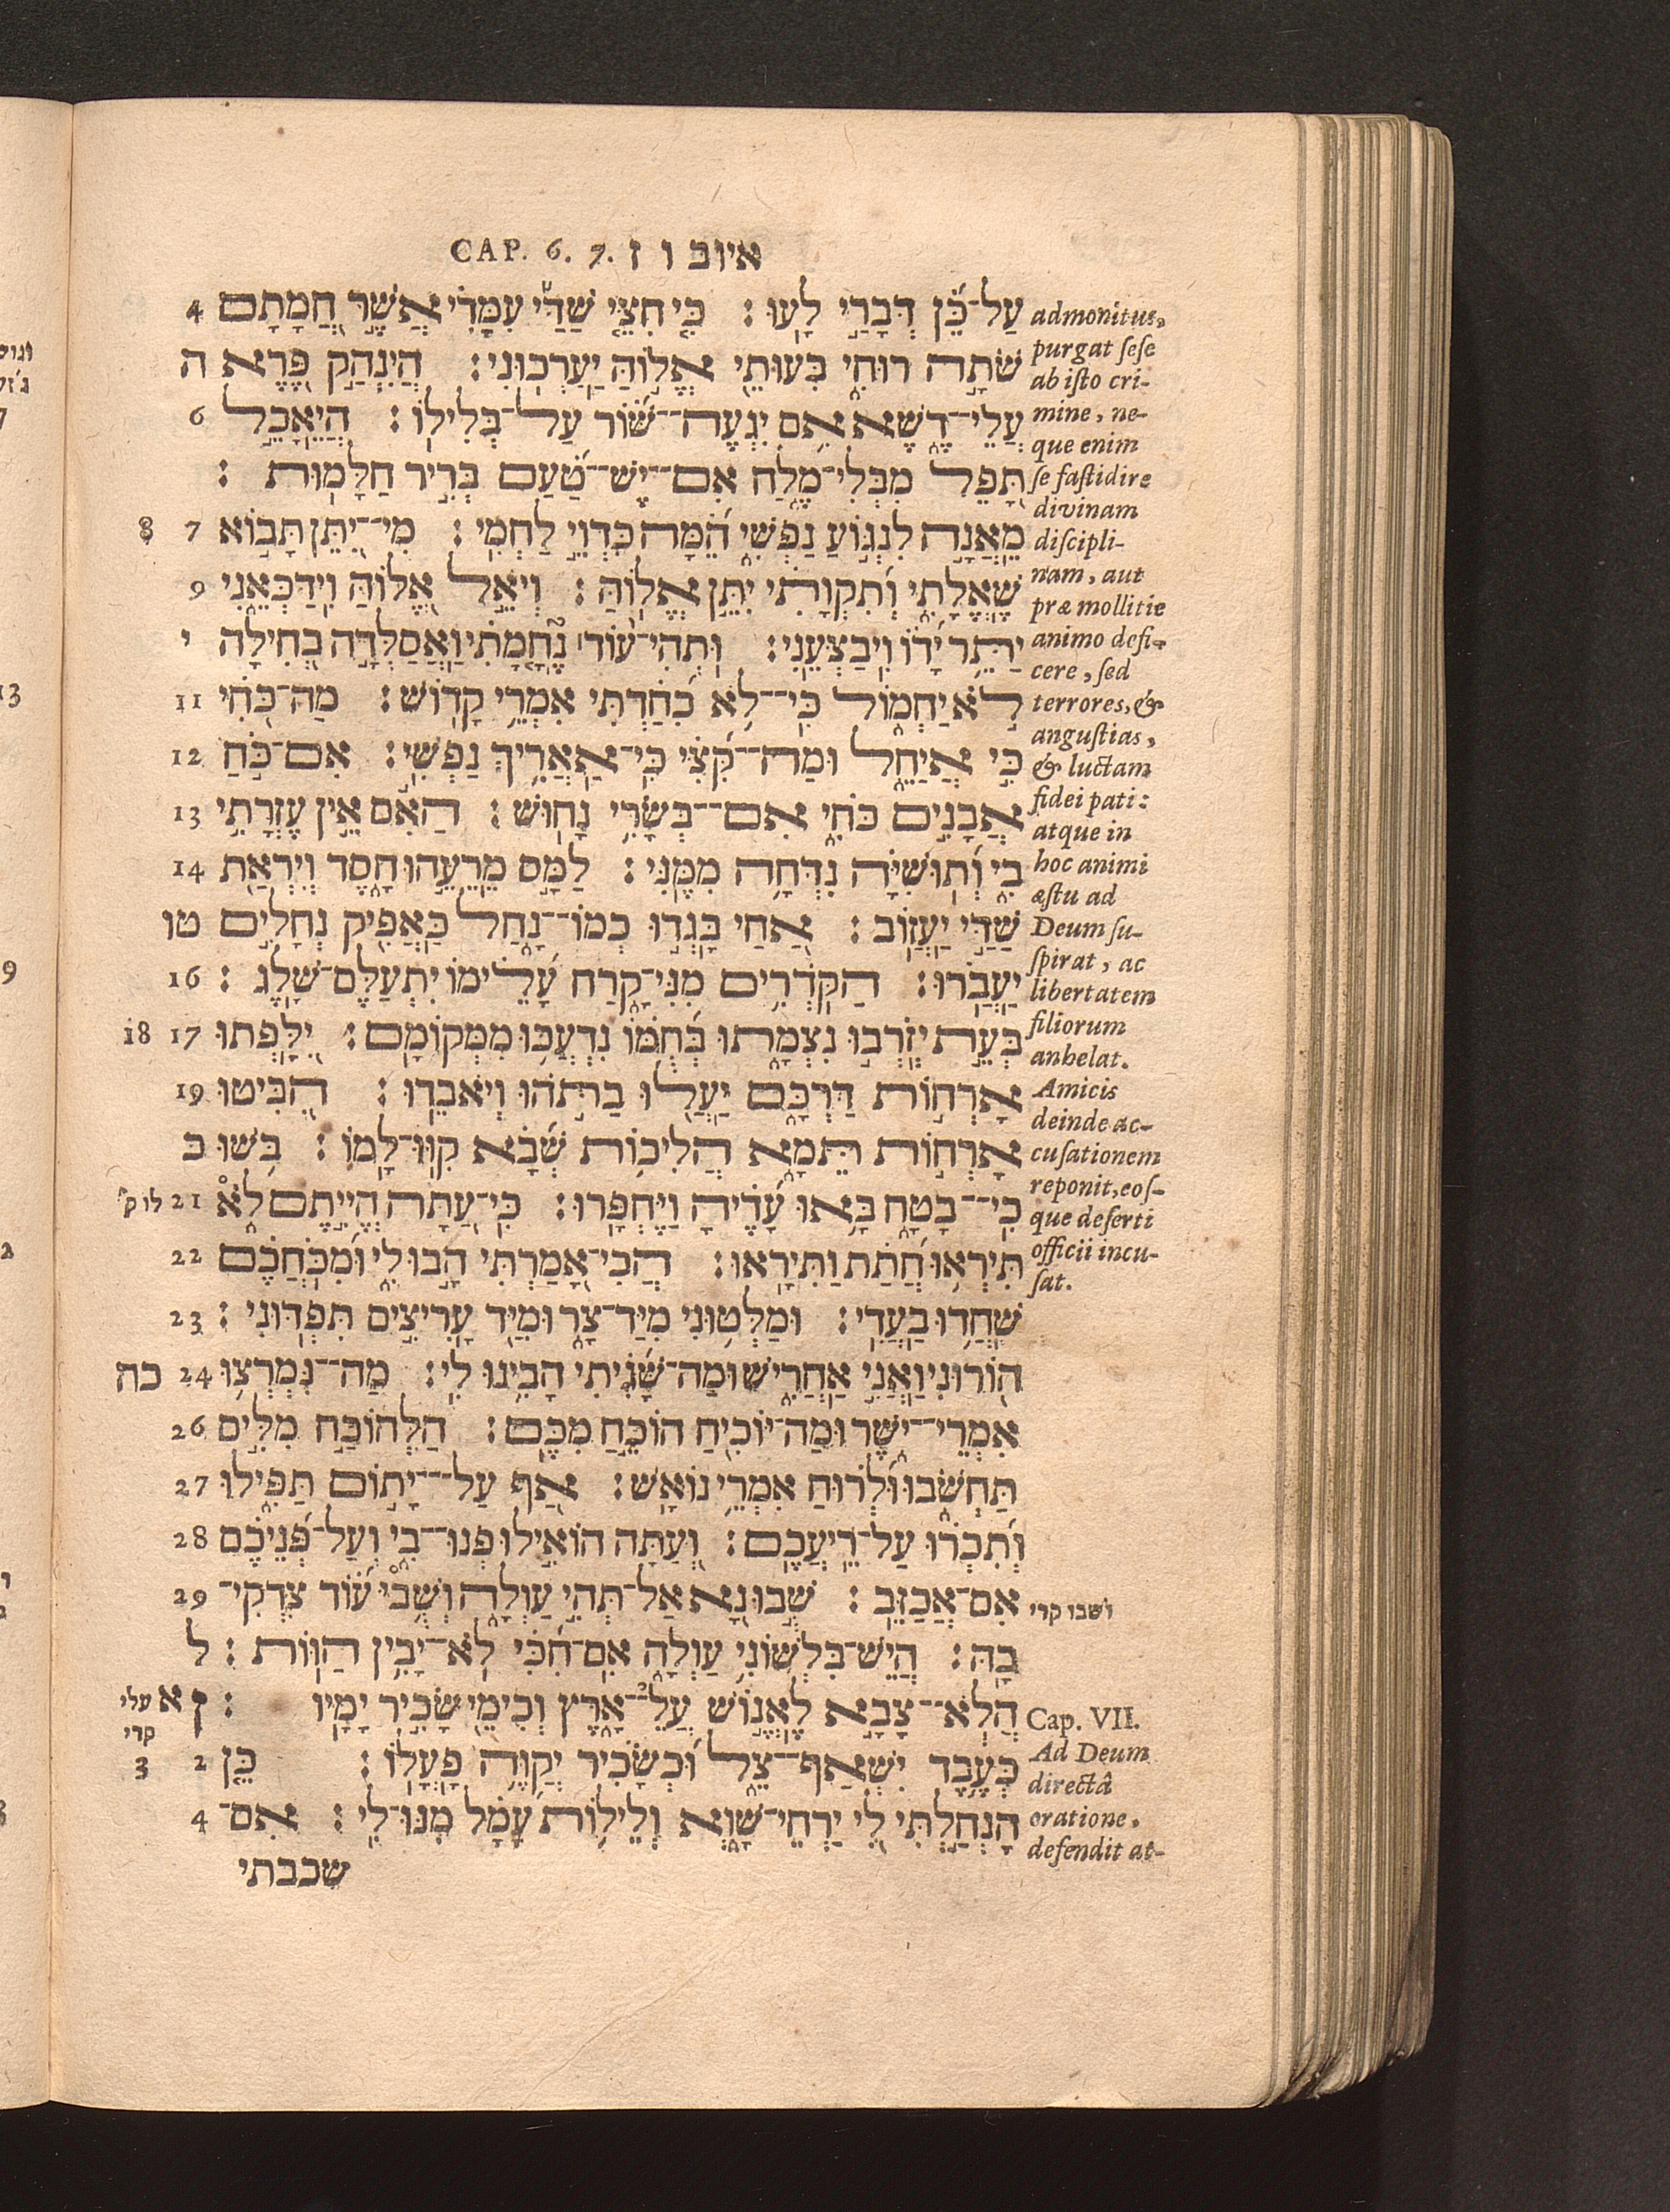 CAP. 6. 7. איוב ו ז
עַל־כֵּ֝֗ן דְּבָרַ֥י לָֽעוּ׃ כִּ֤י חִצֵּ֪י שַׁדַּ֡י עִמָּדִ֗י אֲשֶׁ֣ר חֲ֭מָתָם 4
שֹׁתָ֣ה רוּחִ֑י בִּעוּתֵ֖י אֱל֣וֹהַּ יַֽעַרְכֽוּנִי׃ הֲיִֽנְהַק־פֶּ֥רֶא ה
עֲלֵי־דֶ֑שֶׁא אִ֥ם יִגְעֶה־שּׁ֝֗וֹר עַל־בְּלִילֽוֹ׃ הֲיֵאָכֵ֣ל 6
תָּ֭פֵל מִבְּלִי־מֶ֑לַח אִם־יֶשׁ־טַ֝֗עַם בְּרִ֣יר חַלָּמֽוּת׃
מֵאֲנָ֣ה לִנְגּ֣וֹעַ נַפְשִׁ֑י הֵ֝֗מָּה כִּדְוֵ֥י לַחְמִֽי׃ מִֽי־יִ֭תֵּן תָּב֣וֹא 7 8
שֶֽׁאֱלָתִ֑י וְ֝תִקְוָתִ֗י יִתֵּ֥ן אֱלֽוֹהַּ׃ וְיֹאֵ֣ל אֱ֭לוֹהַּ וִֽידַכְּאֵ֑נִי 9
יַתֵּ֥ר יָ֝ד֗וֹ וִֽיבַצְּעֵֽנִי׃ וּ֥תְהִי־ע֨וֹד נֶ֘חָ֤מָתִ֗י וַאֲסַלְּדָ֣ה בְ֭חִילָה י
לֹ֣א יַחְמ֑וֹל כִּי־לֹ֥א כִ֝חַ֗דְתִּי אִמְרֵ֥י קָדֽוֹשׁ׃ מַה־כֹּחִ֥י 11
כִֽי אֲיַחֵ֑ל וּמַה־קִּ֝צִּ֗י כִּֽי־אַאֲרִ֥יךְ נַפְשִֽׁי׃ אִם־כֹּ֣חַ 12
אֲבָנִ֣ים כֹּחִ֑י אִֽם־בְּשָׂרִ֥י נָחֽוּשׁ׃ הַאִ֬ם אֵ֣ין עֶזְרָתִ֣י 13
בִ֑י וְ֝תֻשִׁיָּ֗ה נִדְּחָ֥ה מִמֶּֽנִּי׃ לַמָּ֣ס מֵרֵעֵ֣הוּ חָ֑סֶד וְיִרְאַ֖ת 14
שַׁדַּ֣י יַעֲזֽוֹב׃ אַ֭חַי בָּגְד֣וּ כְמוֹ־נָ֑חַל כַּאֲפִ֖יק נְחָלִ֣ים טו
יַעֲבֹֽרוּ׃ הַקֹּדְרִ֥ים מִנִּי־קָ֑רַח עָ֝לֵ֗ימוֹ יִתְעַלֶּם־שָֽׁלֶג׃ 16
בְּעֵ֣ת יְזֹרְב֣וּ נִצְמָ֑תוּ בְּ֝חֻמּ֗וֹ נִדְעֲכ֥וּ מִמְּקוֹמָֽם׃ יִ֭לָּפְתוּ 17 18
אָרְח֣וֹת דַּרְכָּ֑ם יַעֲל֖וּ בַתֹּ֣הוּ וְיֹאבֵֽדוּ׃ הִ֭בִּיטוּ 19
אָרְח֣וֹת תֵּמָ֑א הֲלִיכֹ֥ת שְׁ֝בָ֗א קִוּוּ־לָֽמוֹ׃ בֹּ֥שׁוּ כ
כִּֽי־בָטָ֑ח בָּ֥אוּ עָ֝דֶ֗יהָ וַיֶּחְפָּֽרוּ׃ כִּֽי־עַ֭תָּה הֱיִ֣יתֶם לֹ֑א 21 לו ק׳
תִּֽרְא֥וּ חֲ֝תַ֗ת וַתִּירָֽאוּ׃ הֲֽכִי־אָ֭מַרְתִּי הָ֣בוּ לִ֑י וּ֝מִכֹּחֲכֶ֗ם 22
שִׁחֲד֥וּ בַעֲדִֽי׃ וּמַלְּט֥וּנִי מִיַּד־צָ֑ר וּמִיַּ֖ד עָרִיצִ֣ים תִּפְדּֽוּנִי׃ 23
ה֭וֹרוּנִי וַאֲנִ֣י אַחֲרִ֑ישׁ וּמַה־שָּׁ֝גִ֗יתִי הָבִ֥ינוּ לִֽי׃ מַה־נִּמְרְצ֥וּ 24 כה
אִמְרֵי־יֹ֑שֶׁר וּמַה־יּוֹכִ֖יחַ הוֹכֵ֣חַ מִכֶּֽם׃ הַלְהוֹכַ֣ח מִלִּ֣ים 26
תַּחְשֹׁ֑בוּ וּ֝לְר֗וּחַ אִמְרֵ֥י נוֹאָֽשׁ׃ אַף־עַל־יָת֥וֹם תַּפִּ֑ילוּ 27
וְ֝תִכְר֗וּ עַל־רֵֽיעֲכֶֽם׃ וְ֭עַתָּה הוֹאִ֣ילוּ פְנוּ־בִ֑י וְעַל־פְּ֝נֵיכֶ֗ם 28
אִם־אֲכַזֵּֽב׃ שֻֽׁבוּ־נָ֭א אַל־תְּהִ֣י עַוְלָ֑ה וְשֻׁ֥בִי ע֝֗וֹד צִדְקִי־ 29
ושבו קרי
בָֽהּ׃ הֲיֵשׁ־בִּלְשׁוֹנִ֥י עַוְלָ֑ה אִם־חִ֝כִּ֗י לֹא־יָבִ֥ין הַוּֽוֹת׃ ל
הֲלֹא־צָבָ֣א לֶאֱנ֣וֹשׁ עֲלֵ־אָ֑רֶץ וְכִימֵ֖י שָׂכִ֣יר יָמָֽיו׃ ז א עלי
קרי
כְּעֶ֥בֶד יִשְׁאַף־צֵ֑ל וּ֝כְשָׂכִ֗יר יְקַוֶּ֥ה פָעֳלֽוֹ׃ כֵּ֤ן 2 3
הָנְחַ֣לְתִּי לִ֭י יַרְחֵי־שָׁ֑וְא וְלֵיל֥וֹת עָ֝מָ֗ל מִנּוּ־לִֽי׃ אִם־ 4
שכבתי
admonitus,
purgat sese
ab isto cri-
mine, ne-
que enim
se fastidire
divinam
discipli-
nam, aut
præ mollitie
animo defi-
cere, sed
terrores, &
angustias,
& luctam
fidei pati:
atque in
hoc animi
æstu ad
Deum su-
spirat, ac
libertatem
filiorum
anhelat.
Amicis
deinde ac-
cusationem
reponit, eos-
que deserti
officii incu-
sat.
Cap. VII.
Ad Deum
directâ
oratione,
defendit at-